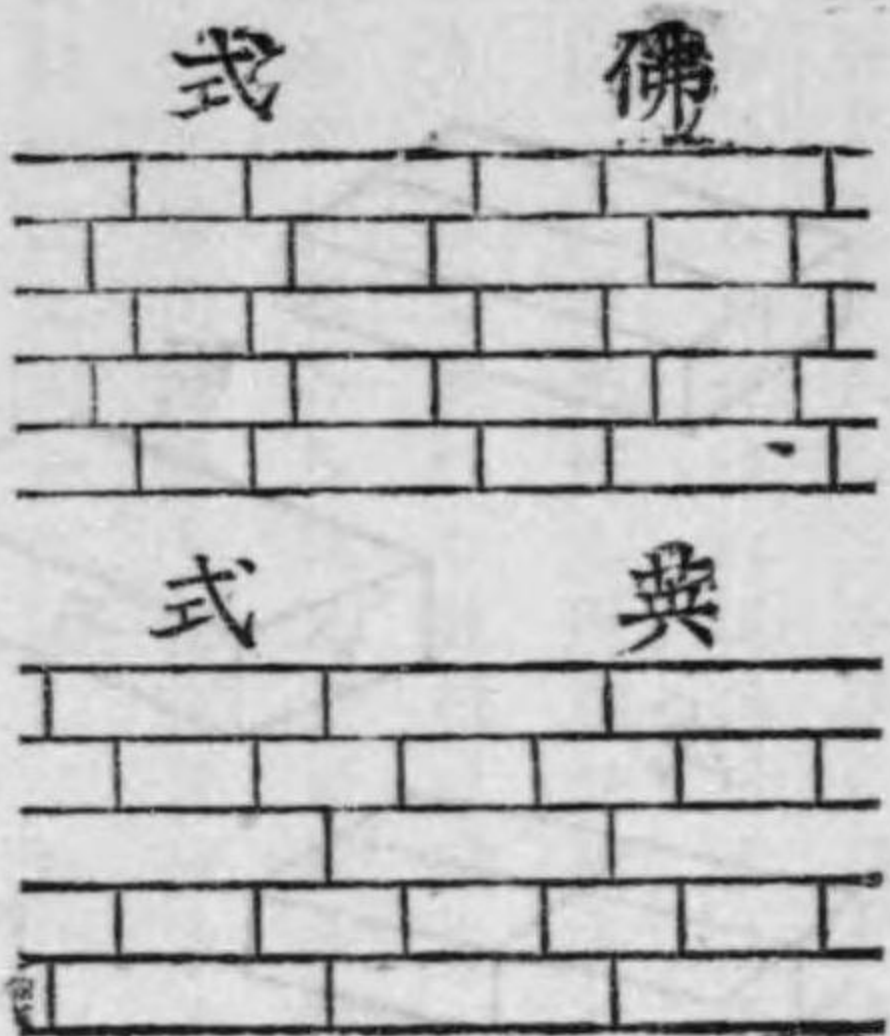 佛式
英式